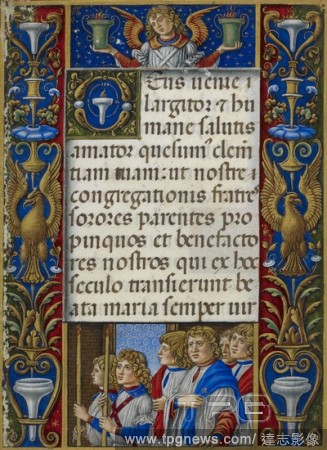 Deus uenie i
largitor & hu
mane salutis
amator quesum' clem̄
tiam tuam: ut nostre
congregationis fratre
sorores parentes pro
pinquos et benefacto
res nostros qui ex hoc
seculo transierunt be
ata maria semper uir
TPG
www.tpgnews.com/ 達志影像